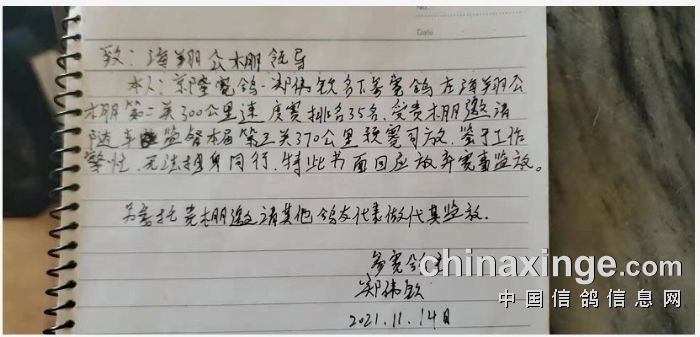 No.
Date
致：海翔公棚领导
本人：京隆赛鸽-郑伟钦名下参赛鸽在海翔公
棚第二关300公里速度赛排名35名，受贵棚邀请
随车监督本届第三关370公里预赛司放，鉴于工作
性，无法抽身同行，特此书面回应放弃赛事监放。
另委托贵棚邀请其他鸽友代表做代其监放．
参赛鸽主
郑伟钦
2021.11.14日
chinaxinge.com
中国信鸽信息网